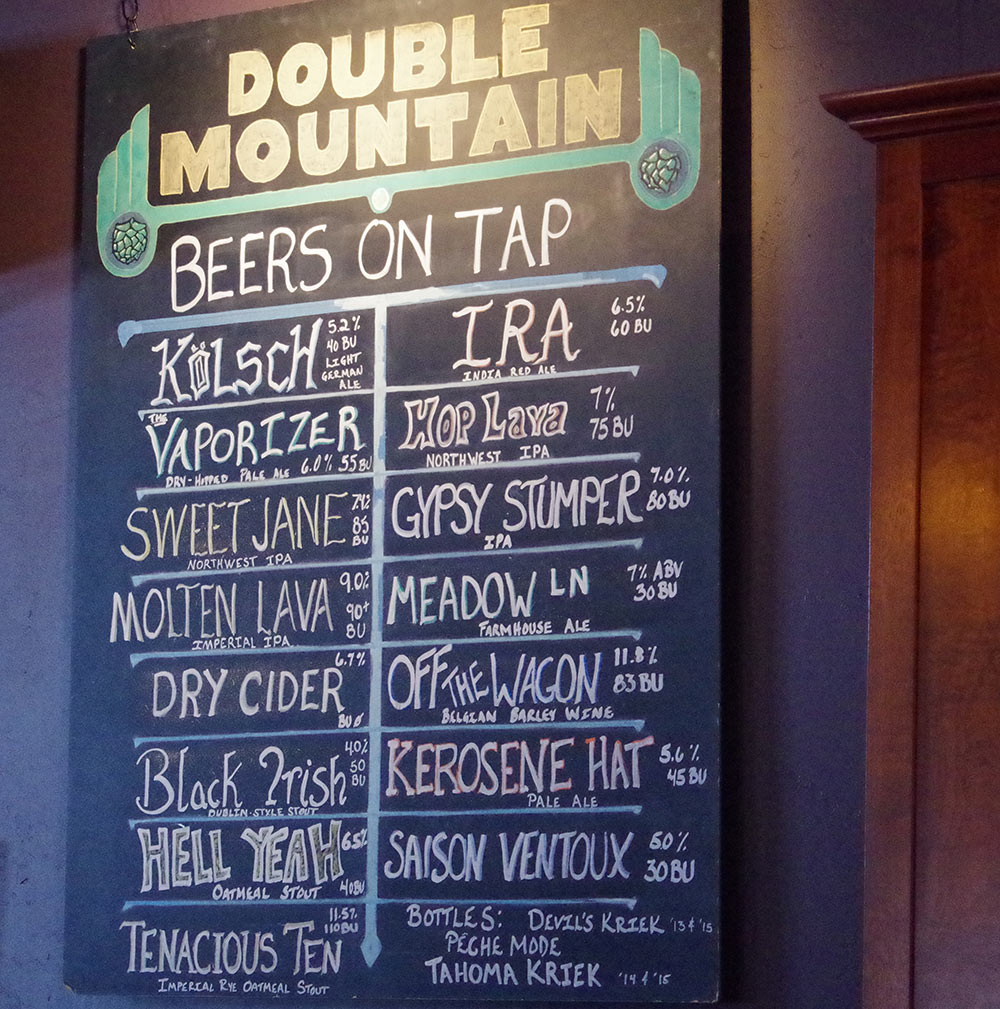 DOUBLE
MOUNTAIN
BEERS ON TAP
KÖLSCH
5.2%
40 BU
LIGHT
GERMAN
ALE
THE
VAPORIZER
DRY-HOPPED PALE ALE 6.0% 55 BU
SWEET JANE
7.4%
85
BU
NORTHWEST IPA
MOLTEN LAVA
9.0%
90+
BU
IMPERIAL IPA
6.7%
DRY CIDER
BU 0
Black Irish
4.0%
50
BU
DUBLIN-STYLE STOUT
HELL YEAH 6.5%
OATMEAL STOUT 40 BU
11.5%
110 BU
TENACIOUS TEN
IMPERIAL RYE OATMEAL STOUT
IRA
6.5%
60 BU
INDIA RED ALE
HOP LAVA
7%
75 BU
NORTHWEST IPA
GYPSY STUMPER
7.0%
80 BU
IPA
MEADOW LN
7% ABV
30 BU
FARMHOUSE ALE
OFF THE WAGON
11.8%
83 BU
BELGIAN BARLEY WINE
KEROSENE HAT
5.6%
45 BU
PALE ALE
SAISON VENTOUX
5.0%
30 BU
BOTTLES: DEVIL'S KRIEK '13 & '15
PÊCHE MODE
TAHOMA KRIEK '14 & '15